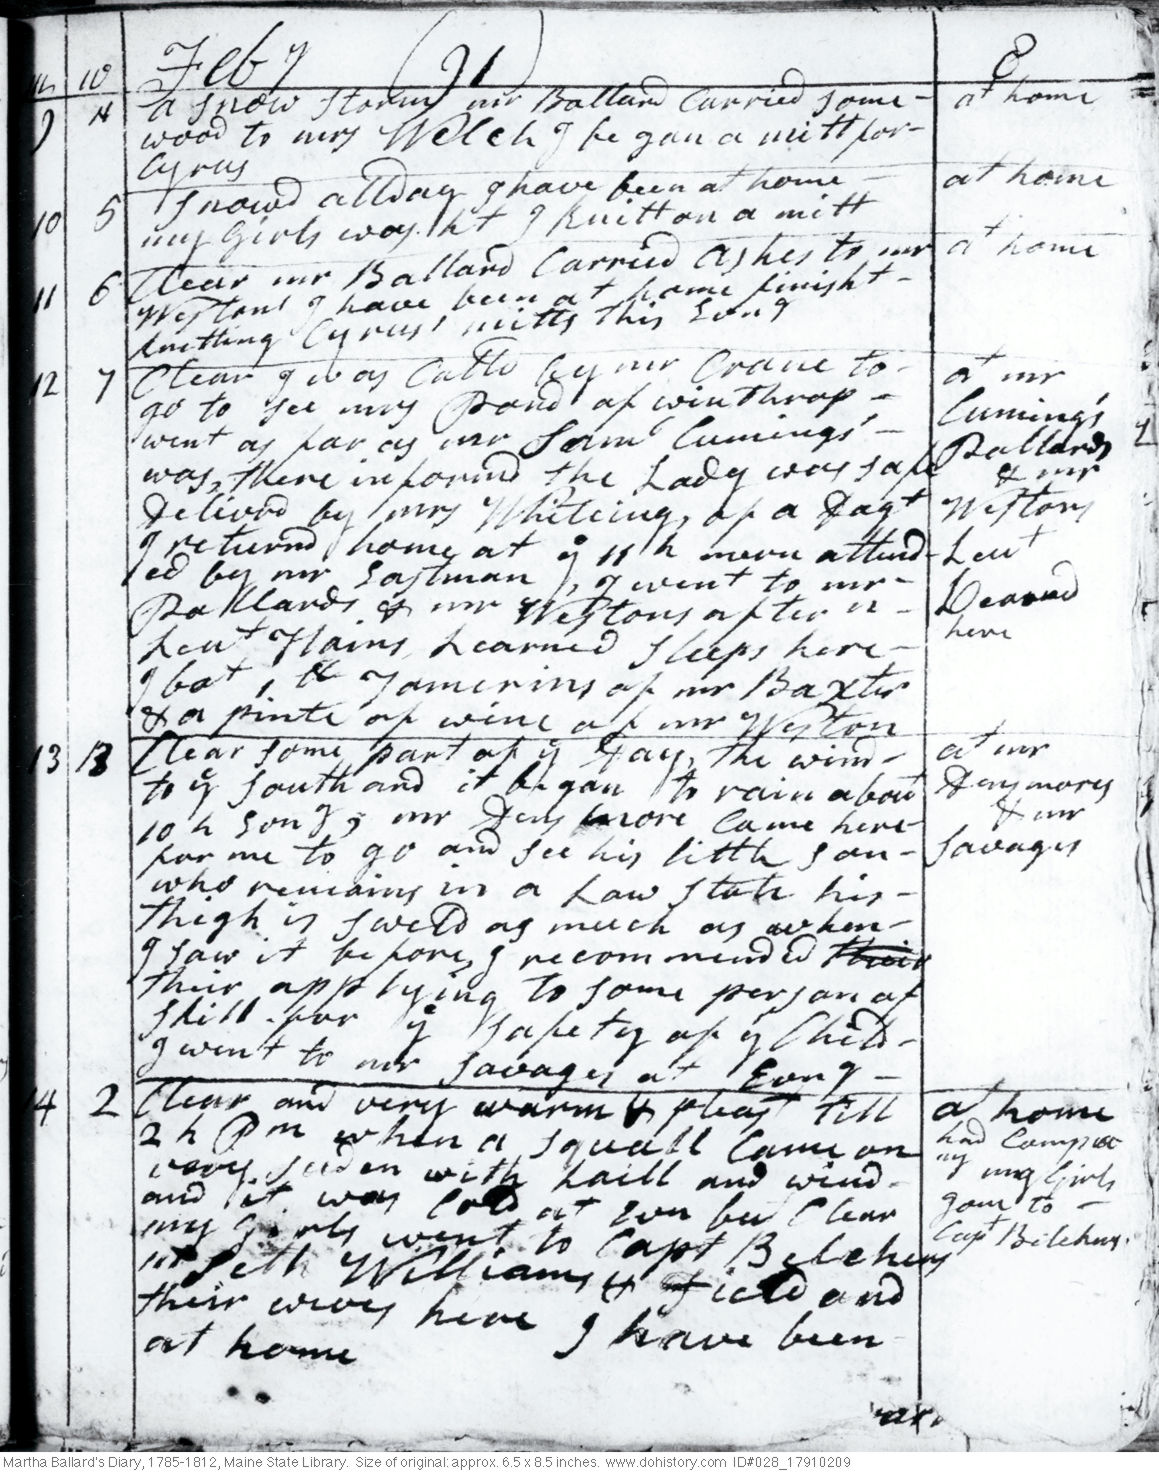 m w Feby (91) 8
9 4 a snow storm mr Ballard Carried some- at home
wood to mrs Welch I began a mitt for-
Cyrus
10 5 Snowd all day I have been at home - at home
my Girls wash't I knitt on a mitt
11 6 Clear mr Ballard Carried Ashes to mr at home
Westons I have been at home finisht-
knitting Cyrus' mitts this Evng
12 7 Clear I was Calld by mr Crane to- at mr
go to see mrs Pond of winthrop- Cumings
went as far as mr Saml Cumings- Ballards
was, there informd the Lady was safe & mr
Delivrd by mrs Whiteing, of a Dagt Westons
I returnd home at ye 11 h morn attend- Leut
ed by mr Eastman, I went to mr- Learned
Pollards & mr Westons after n- here
Leut Hains Learned sleeps here-
I bot 1 lb Tamerins of mr Baxter
& a pinte of wine of mr Weston
13 B Clear some part of ye Day, the wind- at mr
to ye South and it began to rain about Densmores
10 h Evng, mr Densmore Came here & mr
for me to go and see his little son- Savages
who remains in a Law state his-
thigh is sweld as much as when-
I saw it before, I recommended their
their applying to some person of
skill for ye safety of ye Child-
I went to mr Savages at Evng-
14 2 Clear and very warm & pleast till at home
2 h Pm when a squall Came on had Compa
very suden with haill and wind- ny my Girls
and it was Cold at Evn but Clear gone to-
my Girls went to Capt Belchers Capt Belchers.
nt Seth Williams & Field and
their wives here I have been
at home